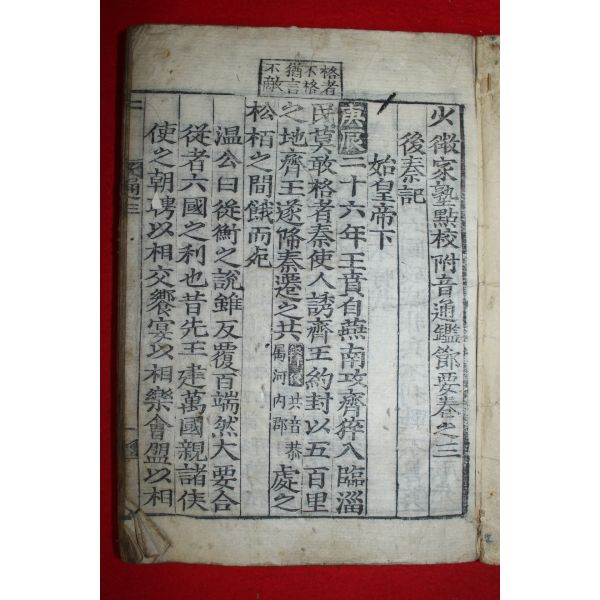 少微家塾點校附音通鑑節要卷之三
後秦記
始皇帝下
庚辰二十六年王賁自燕南攻齊猝入臨淄
民莫敢格者秦使人誘齊王約封以五百里
之地齊王遂降秦遷之共 共音恭 屬河內郡 處之
松栢之間餓而死
溫公曰從衡之說雖反覆百端然大要合
從者六國之利也昔先王建萬國親諸侯
使之朝聘以相交饗宴以相樂會盟以相
格者
不格
猶言
不敵
通三